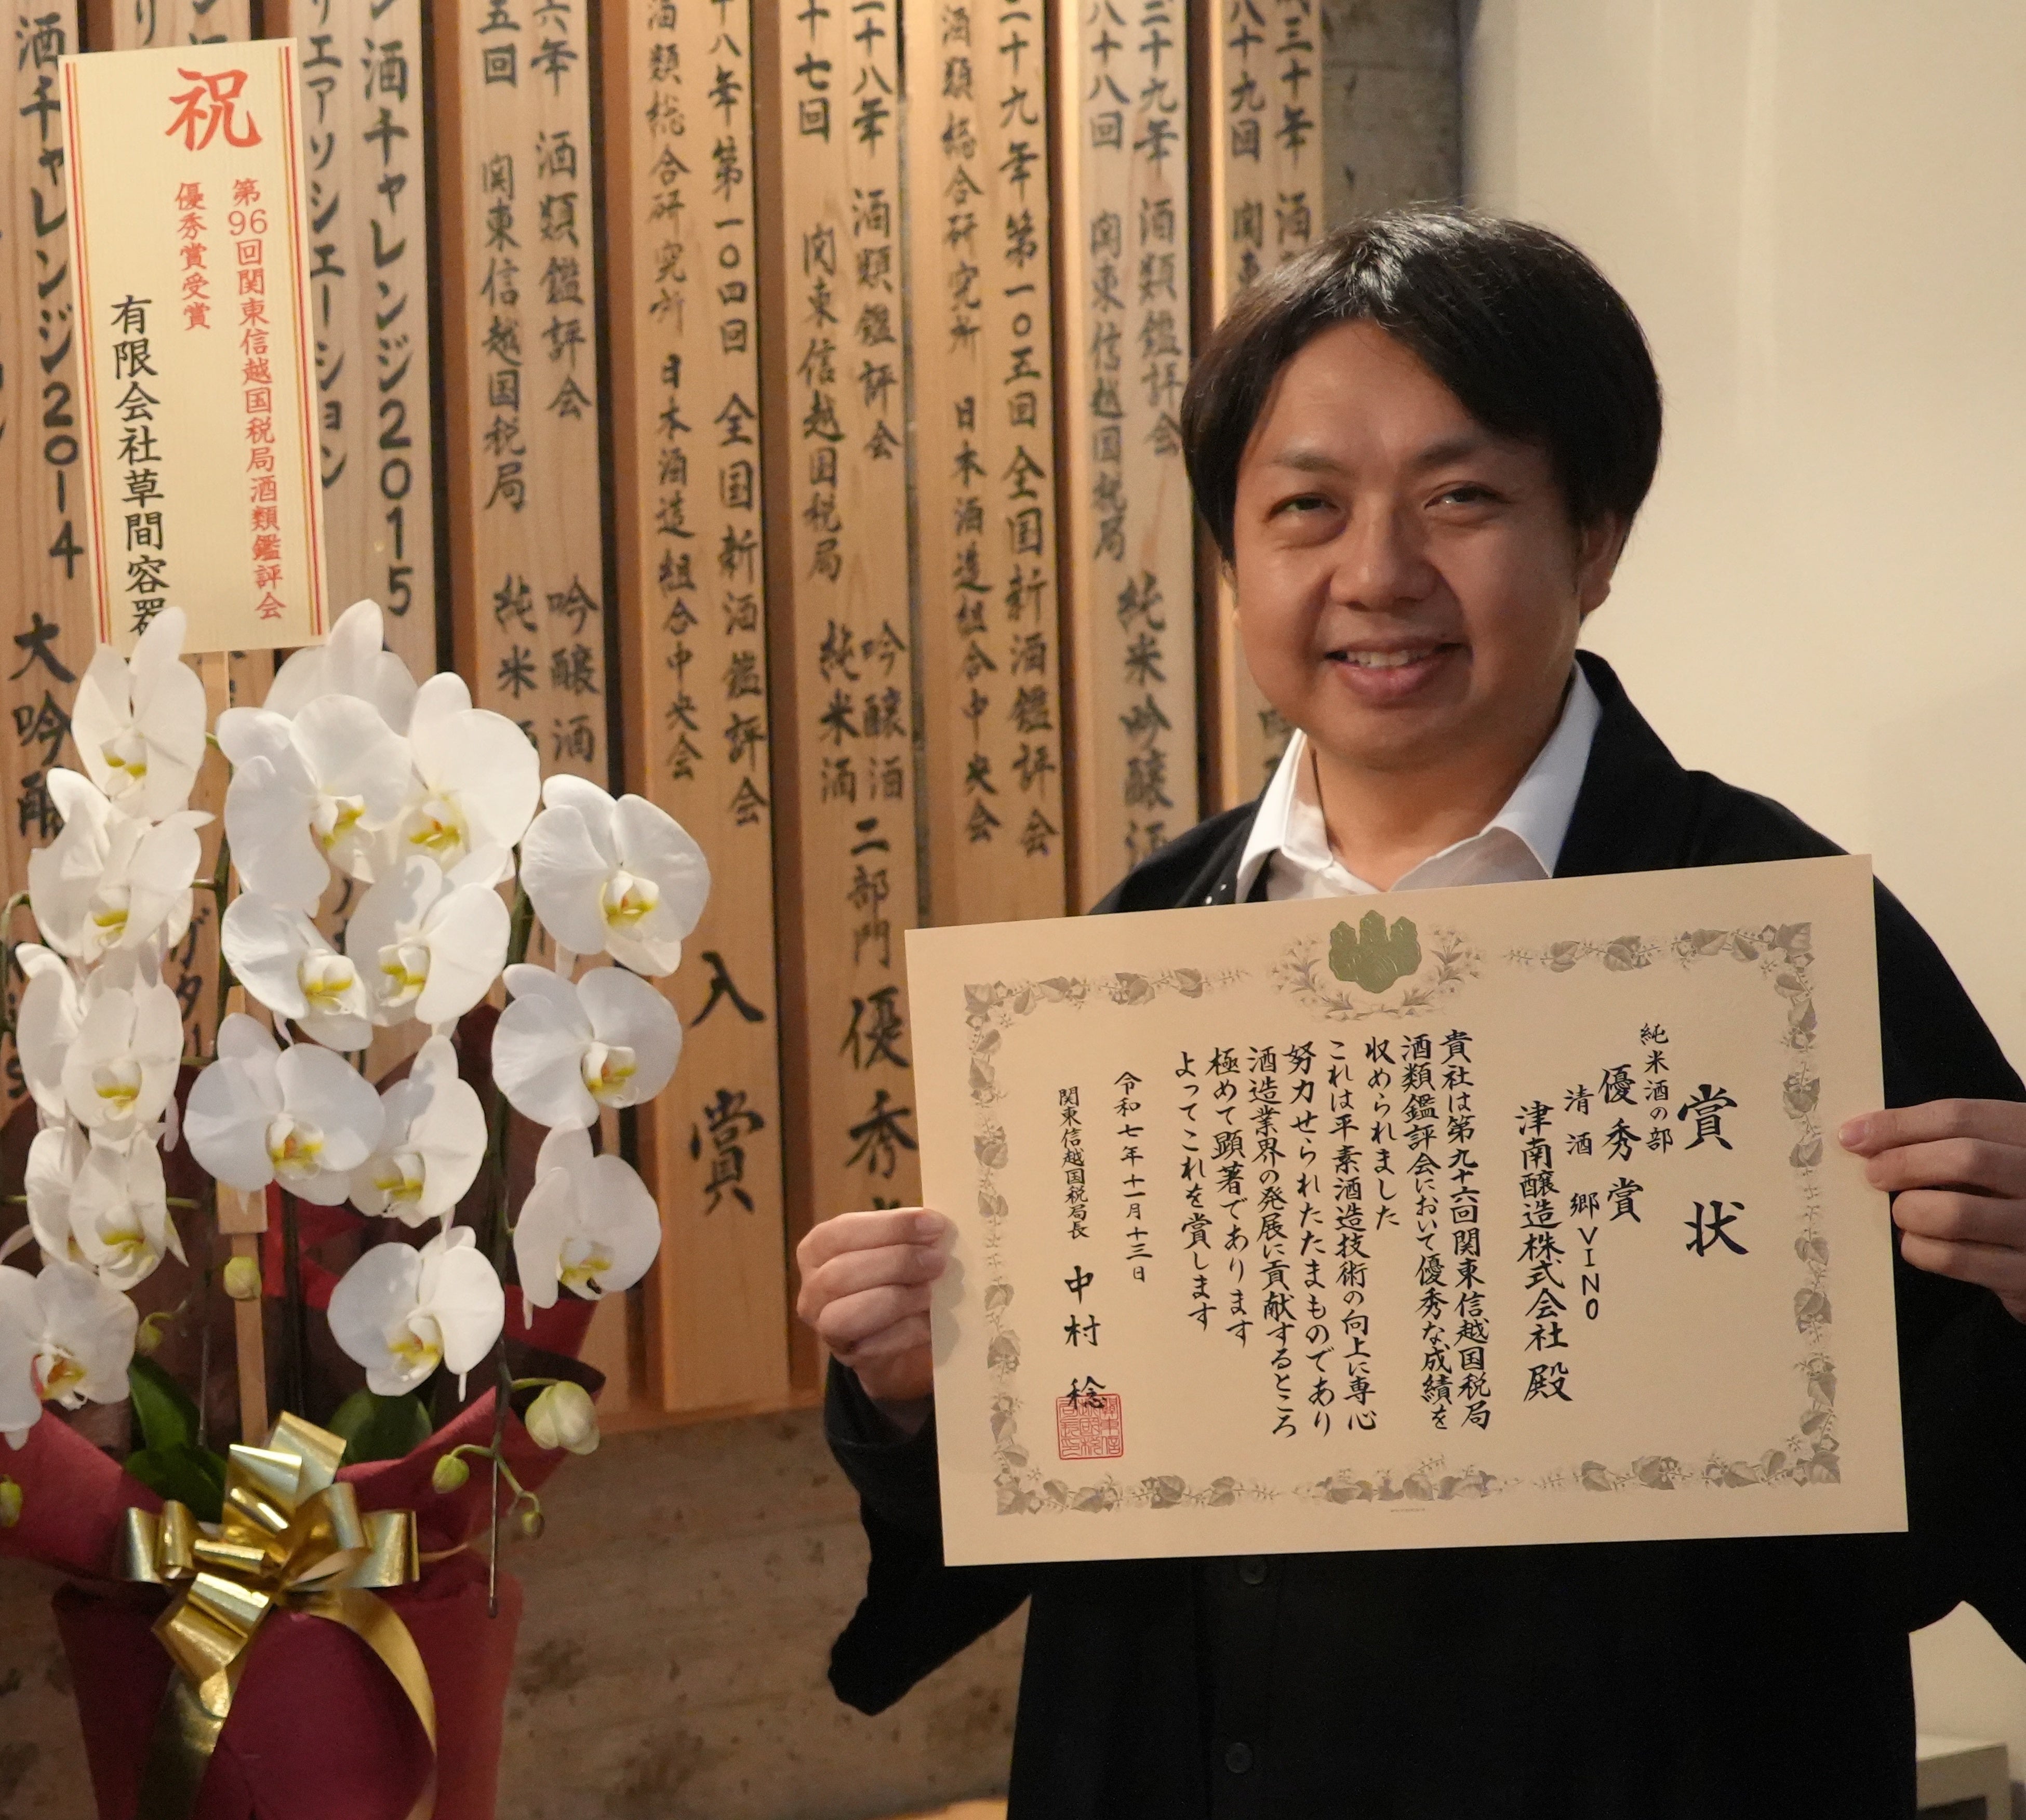 祝
第96回関東信越国税局酒類鑑評会
優秀賞受賞
有限会社草間容器
賞状
純米酒の部
優秀賞
清酒 郷VINO
津南醸造株式会社 殿
貴社は第九十六回関東信越国税局
酒類鑑評会において優秀な成績を
収められました
これは平素酒造技術の向上に専心
努力せられたたまものであり
酒造業界の発展に貢献するところ
極めて顕著であります
よってこれを賞します
令和七年十一月十三日
関東信越国税局長 中村 稔
三十年 酒
八十九回 関東
二十九年 酒類鑑評会
八十八回 関東信越国税局 純米吟醸酒
二十九年第一〇五回全国新酒鑑評会
酒類総合研究所 日本酒造組合中央会
二十八年 酒類鑑評会 吟醸酒
十七回 関東信越国税局 純米酒 二部門 優秀
十八年第一〇四回 全国新酒鑑評会 入賞
酒類総合研究所 日本酒造組合中央会
六年 酒類鑑評会 吟醸酒
五回 関東信越国税局 純米酒
酒チャレンジ2015
エアソシエーション
酒チャレンジ2014 大吟醸